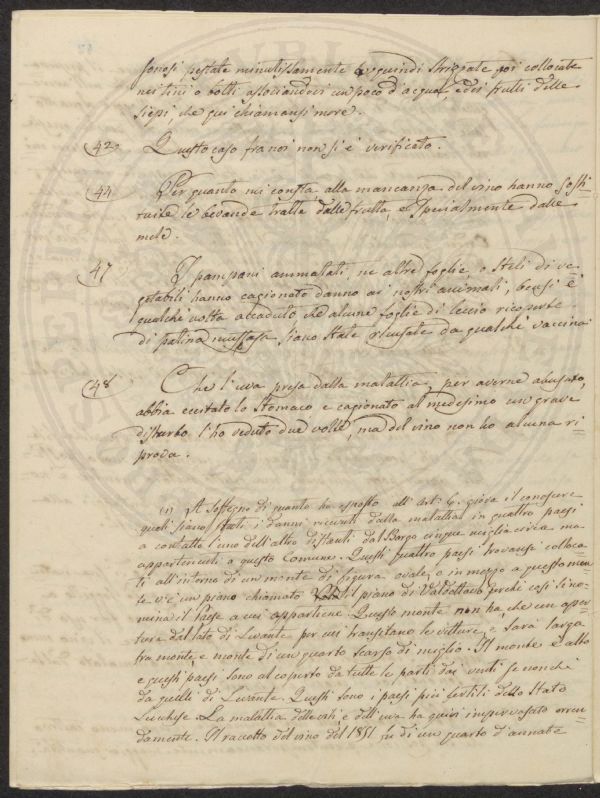 sonosi pestate minutissamente e quindi strizzate poi collocate
nei tini o botti associandovi un poco d'acqua, e dei frutti delle
siepi che qui chiamansi more.
42 Questo caso fra noi non si è verificato.
44 Per quanto mi consta alla mancanza del vino hanno sosti
tuite le bevande tratte dalle frutta, e specialmente dalle
mele.
47 I pampani ammalati, ne altre foglie, o steli di ve
getabili hanno cagionato danno ai nostri animali, bensi è
qualche volta accaduto che alcune foglie di leccio ricoperte
di patina siano state ricusate da qualche vaccina
48 Che l'uva presa dalla malattia, per averne abusato,
abbia eccitato lo stomaco e cagionato al medesimo un grave
disturbo l'ho veduto due volte, ma del vino non ho alcuna ri=
prova.
(1) A sostegno di quanto ho esposto all'Art: 6. giova il conoscere
quali siano stati i danni ricevuti dalla malattia in quattro paesi
a contatto l'uno dell'altro distanti dal Borgo cinque miglia circa ma
appartenenti a questo Comune. Questi quattro paesi trovansi colloca=
ti all'intorno di un monte di figura ovale, e in mezzo a questo mon
te vi è un piano chiamato il piano di Valdottavo perchè così si no=
mina il Paese a cui appartiene. Questo monte non ha che un aper=
tura dal lato di Levante per cui transitano le vetture, e sarà larga
fra monte e monte di un quarto scarso di miglio. Il monte è alto
e questi paesi sono al coperto da tutte le parti dai venti se nonchè
da quelli di Levante. Questi sono i paesi più fertili dello Stato
Lucchese. La malattia delle viti e dell'uva ha quivi imperversato orren=
damente. Il raccolto del vino del 1851 fu di un quarto d'annata